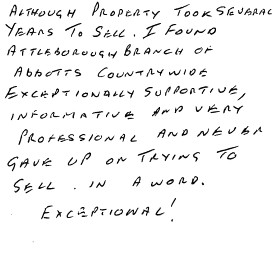 ALTHOUGH PROPERTY TOOK SEVERAL
YEARS TO SELL. I FOUND
ATTLEBOROUGH BRANCH OF
ABBOTTS COUNTRYWIDE
EXCEPTIONALLY SUPPORTIVE,
INFORMATIVE AND VERY
PROFESSIONAL AND NEVER
GAVE UP ON TRYING TO
SELL. IN A WORD.
EXCEPTIONAL!